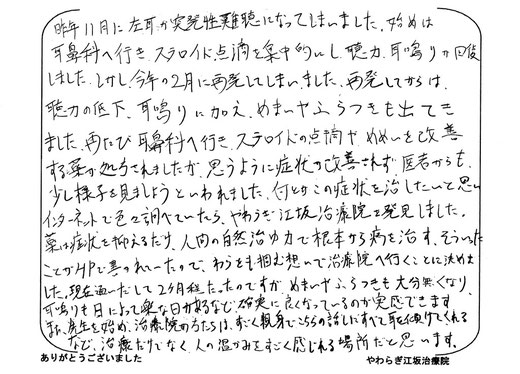 昨年11月に左耳が突発性難聴になってしまいました。始めは
耳鼻科へ行き、ステロイド点滴を集中的にし、聴力、耳鳴りが回復
しました。しかし、今年の2月に再発してしまいました。再発してからは、
聴力の低下、耳鳴りに加え、めまいやふらつきも出てき
ました。再たび耳鼻科へ行き、ステロイドの点滴やめまいを改善
する薬が処方されましたが、思うように症状が改善されず、医者からも、
少し様子を見ましょうといわれました。何とかこの症状を治したいと思い
インターネットで色々調べていたら、やわらぎ江坂治療院を発見しました。
薬は症状を抑えるだけ、人間の自然治ゆ力で根本から病を治す、そういった
ことがHPで書かれていたので、わらをも掴む想いで治療院へ行くことに決めま
した。現在通いだして2ヶ月程たったのですが、めまいやふらつきも大分無くなり、
耳鳴りも日によって楽な日が来るなど、確実に良くなっているのが実感できます。
また、先生を始め、治療院の方たちは、すごく親身でこちらの話しにすべて耳を傾けてくれる
など、治療だけでなく、人の温かみをすごく感じれる場所だと思います。
ありがとうございました やわらぎ江坂治療院